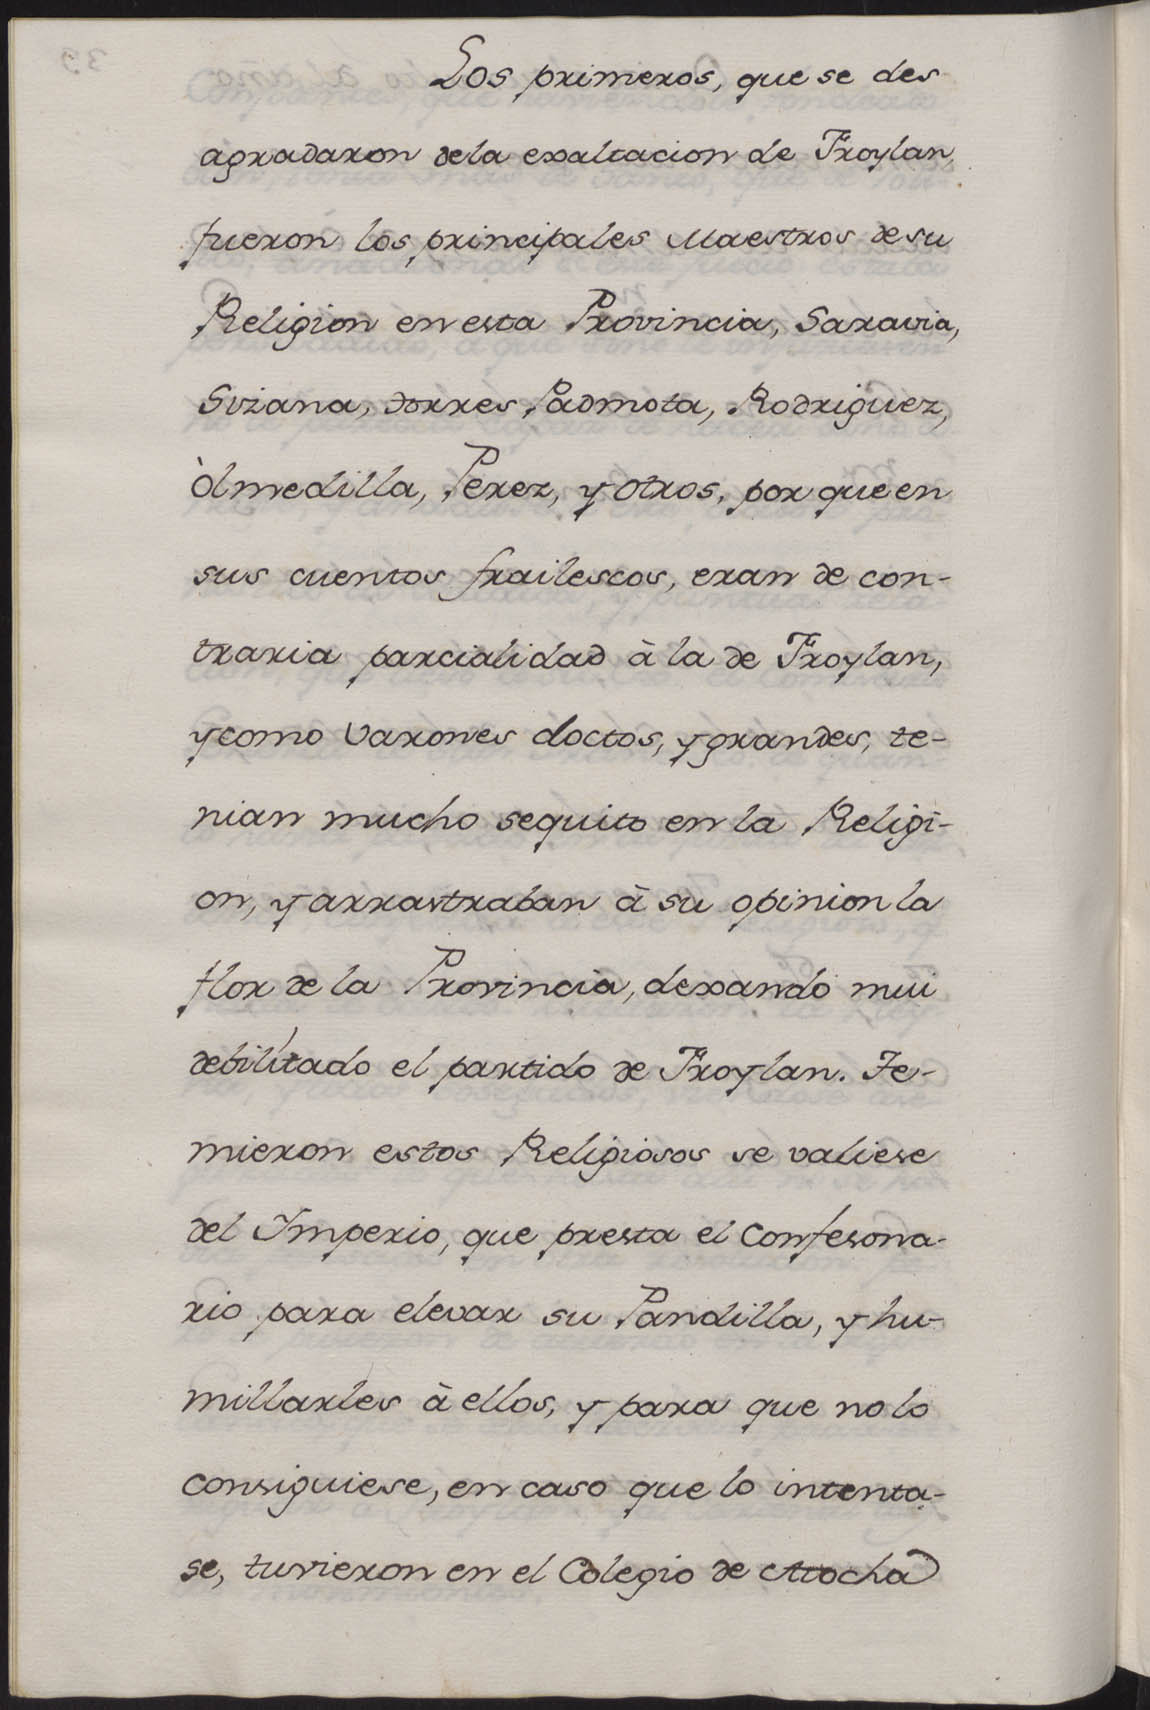 Los primeros, que se des
agradaron dela exaltacion de Froylan,
fueron los principales Maestros de su
Religion en esta Provincia, Saravia,
Sviana, Torres, Padmota, Rodriguez,
òlmedilla, Perez, y otros, por que en
sus cuentos frailescos, eran de con-
traria parcialidad à la de Froylan,
y como varones doctos, y grandes, te-
nian mucho sequito en la Religi-
on, y arrastraban à su opinion la
flor de la Provincia, dexando mui
debilitado el partido de Froylan. Te-
mieron estos Religiosos se valiese
del Imperio, que presta el Confesona-
rio para elevar su Pandilla, y hu-
millarles à ellos, y para que no lo
consiguiese, en caso que lo intenta-
se, tuvieron en el Colegio de Atocha